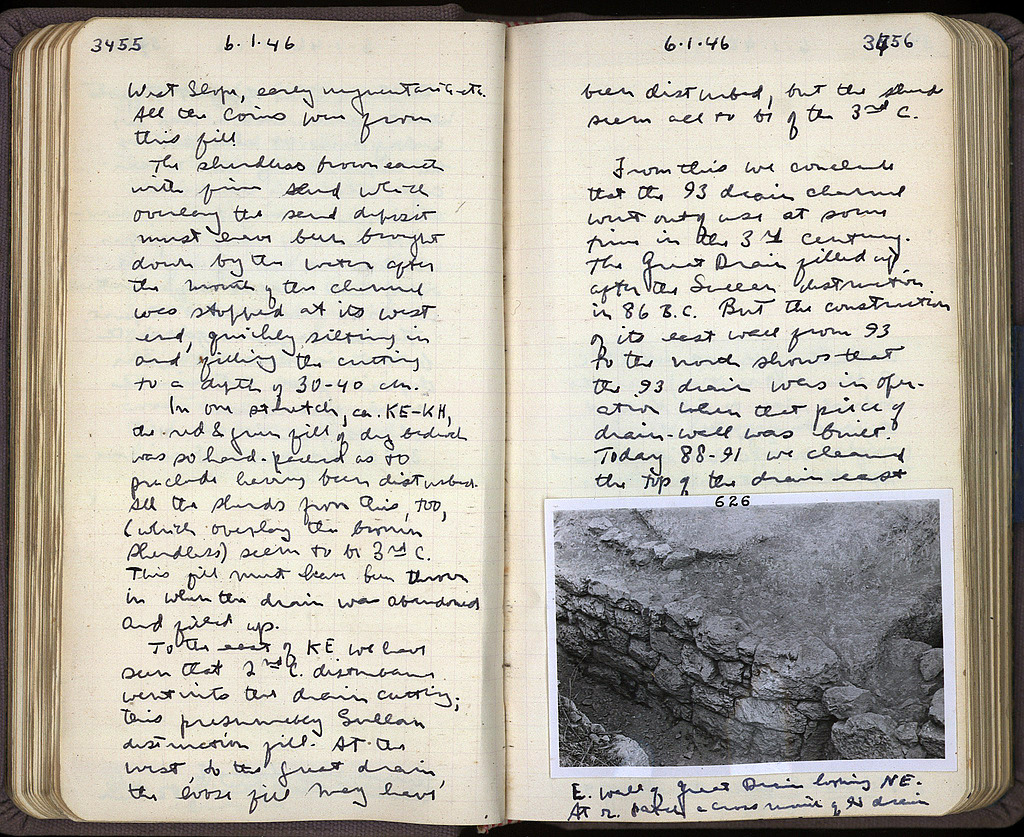 3455 6.1.46
West Slope, early
All the coins were from
this fill.
The sherdless brown earth
with fine sand which
overlay the sand deposit
must have been brought
down by the water after
the mouth of the channel
was stopped at its west
end, quickly silting in
and filling the cutting
to a depth of 30-40 cm.
In one stretch, ca. KE-KH,
the red & green fill of dug bedrock
was so hard-packed as to
preclude having been disturbed.
All the sherds from this, too,
(which overlay the brown
sherdless) seem to be 3rd C.
This fill must have been thrown
in when the drain was abandoned
and filled up.
To the east of KE we have
seen that 2nd C. disturbance
went into the drain cutting;
this presumably Sullan
destruction fill. At the
west, to the great drain,
the loose fill may have
6.1.46 3456
been disturbed, but the sherds
seem all to be of the 3rd C.
From this we conclude
that the 93 drain channel
went out of use at some
time in the 3rd century.
The Great Drain filled up
after the Sullan destruction
in 86 B.C. But the construction
of its east wall from 93
to the north shows that
the 93 drain was in oper-
ation when that piece of
drain-wall was built.
Today 88-91 we cleaned
the top of the drain east
626
E. wall of Great Drain looking NE.
At r. patch across mouth of 93 drain